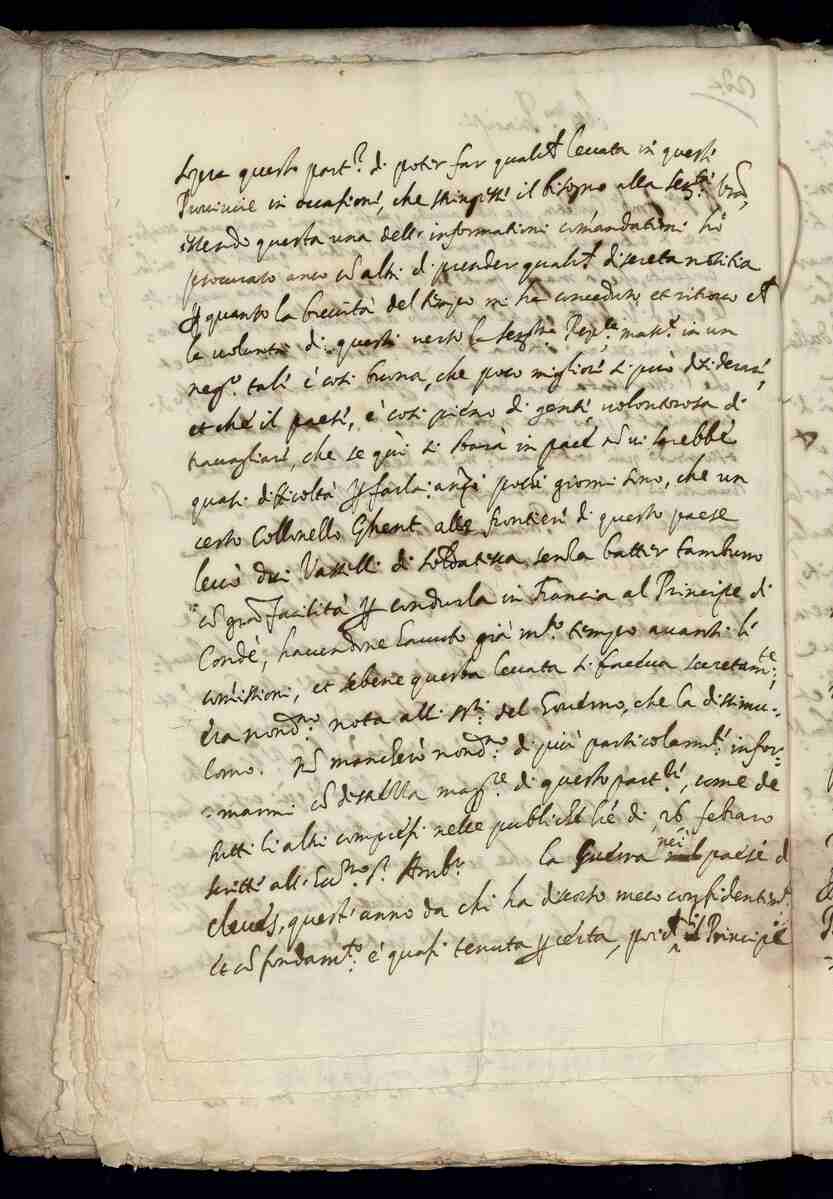 sopra questo part.re di poter far qualche levata in questi
Provincie in occasioni, che stringessi il bisogno alla Ser.tà V.ra,
essendo questa una delle informationi comandatomi hò
procurato anco cō altri di prender qualche discreta notitia
ꝑ quanto la brevità del tempo mi ha conceduto, et ritrovo che
la volontà di questi verso la Seren.ma Rep.ca mass.e in un
neg.o tale è così buona, che poco migliore si può desiderare,
et che il paese, è così pieno di gente volontorosa di
travagliare, che se quì si starà in pace nō vi sarebbe
quasi difficoltà ꝑ farla: anzi pochi giorni sono, che un
certo Collonello Ghent alle frontiere di questo paese
levò dui Vasselli di soldatesca senza batter tamburro
cō gran facilità ꝑ condurla in Francia al Principe di
Condè, havendone havuto già m.to tempo avanti le
comissioni, et sebene questa levata si faceva secretam.te,
era nond.no nota alli ss.ri del Governo, che la dissimu-
lorno. Nō mancherò nond.no di più particolarm.te infor-
marmi cō desterità magg.re di questo part.re, come de
tutti li altri compresi nelle publiche l.re di 26 febraro
scritte all' Ecc.mo S.r Amb.r La Guerra nei paesi d
cleves, quest' anno da chi ha discorso meco confidentem.te
et cō fondam.to è quasi tenuta ꝑ certa, poiche il Principe